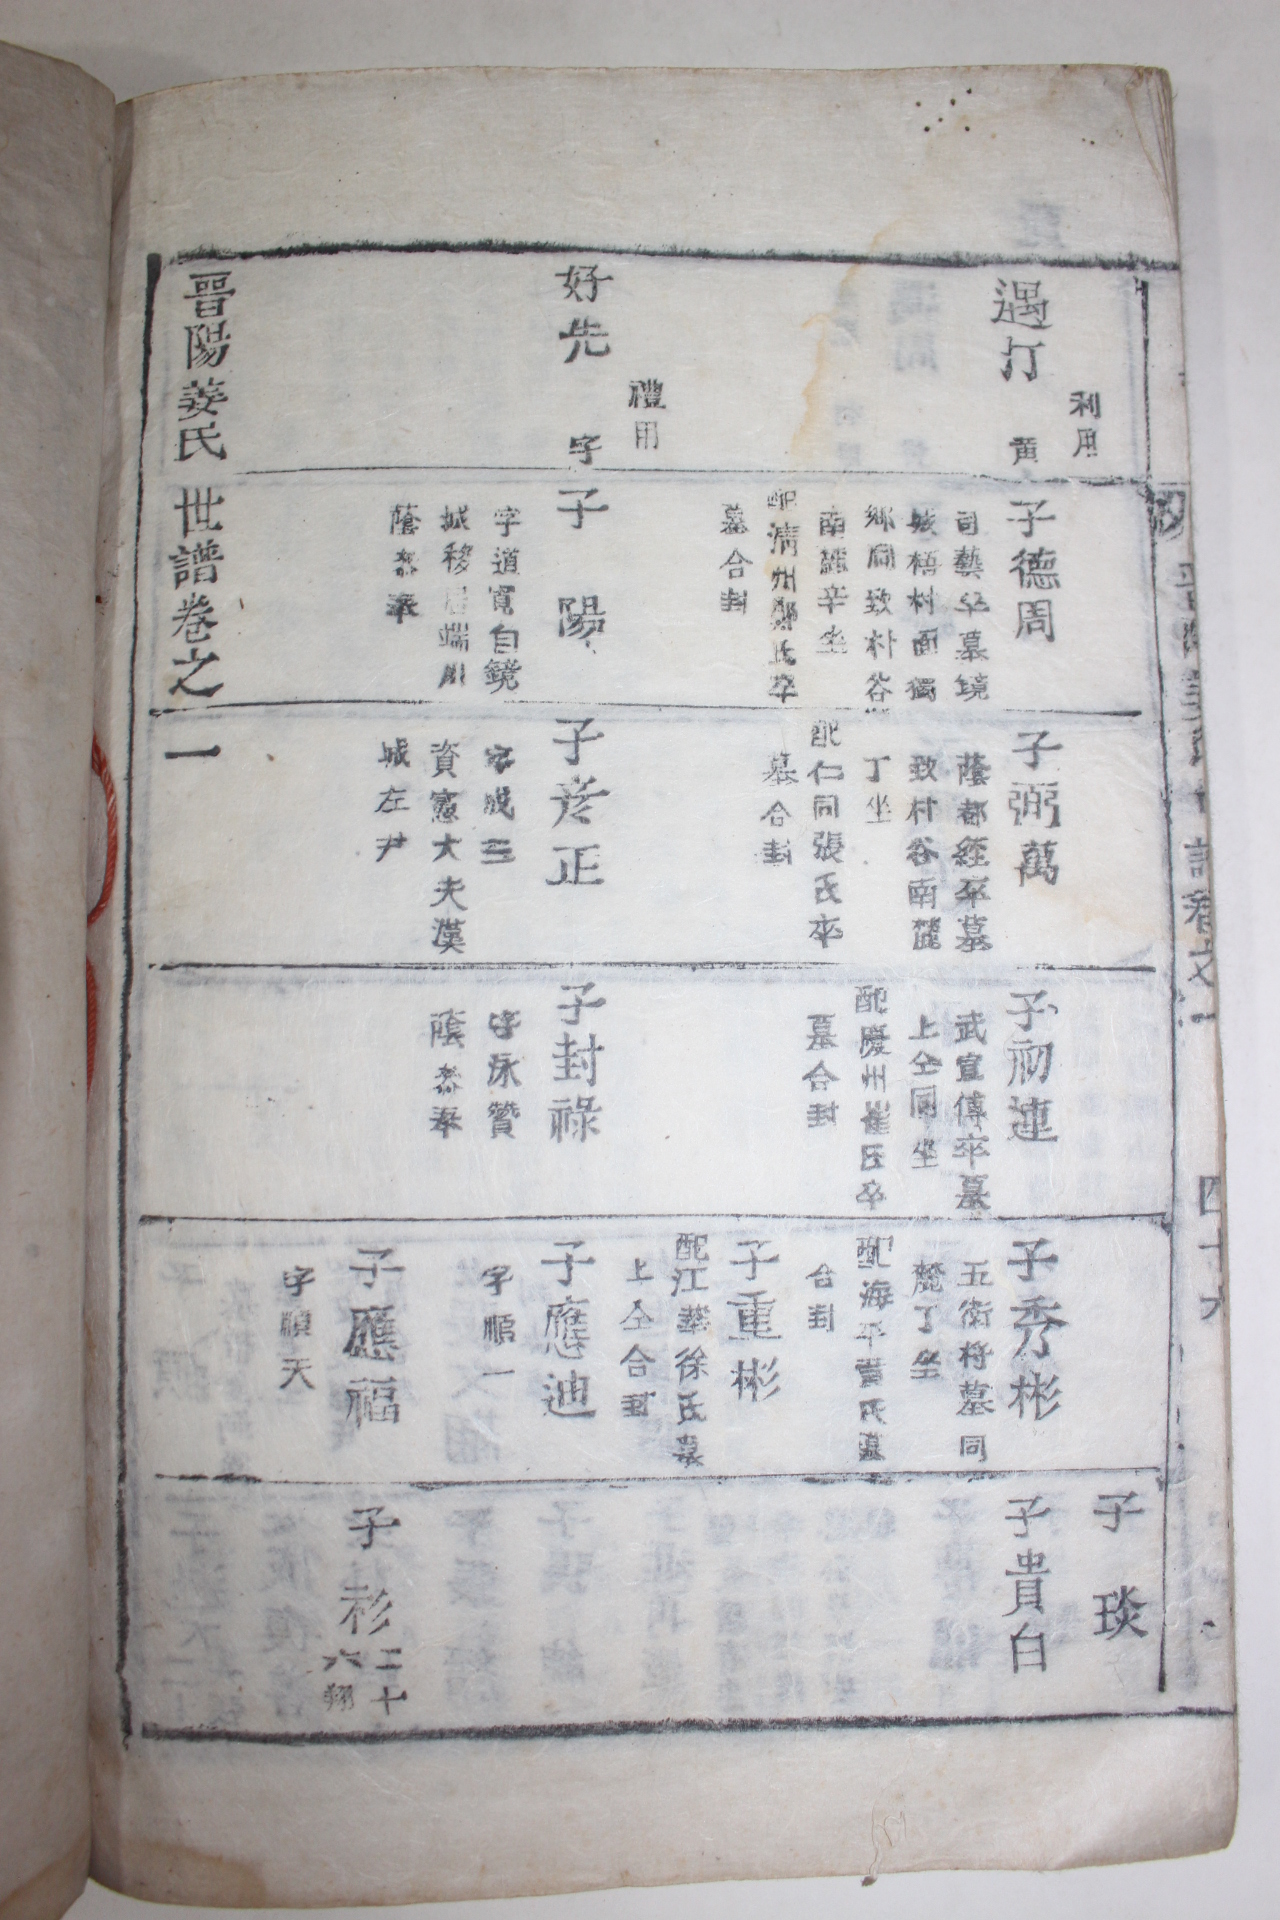 利用
遇灯
黄
禮用
好先
字
晋陽姜氏世譜卷之一
子德周
司藝卒墓鏡
城梧村面獨
鄉洞致村谷
南麓辛坐
配淸州鄭氏卒
墓合封
子陽
字道寬自鏡
城移居端川
蔭叅奉
子弼萬
蔭都經卒墓
致村谷南麓
丁坐
配仁同張氏卒
墓合封
子彦正
字成三
資憲大夫漢
城左尹
子初連
武宣傅卒墓
上仝同坐
配慶州崔氏卒
墓合封
子封祿
字泳贊
蔭叅奉
子秀彬
五衛將墓同
麓丁坐
配海平賈氏墓
合封
子重彬
配江華徐氏墓
上仝合封
子應迪
字順一
子應福
字順天
子琰
子貴白
子衫
二十
六翔